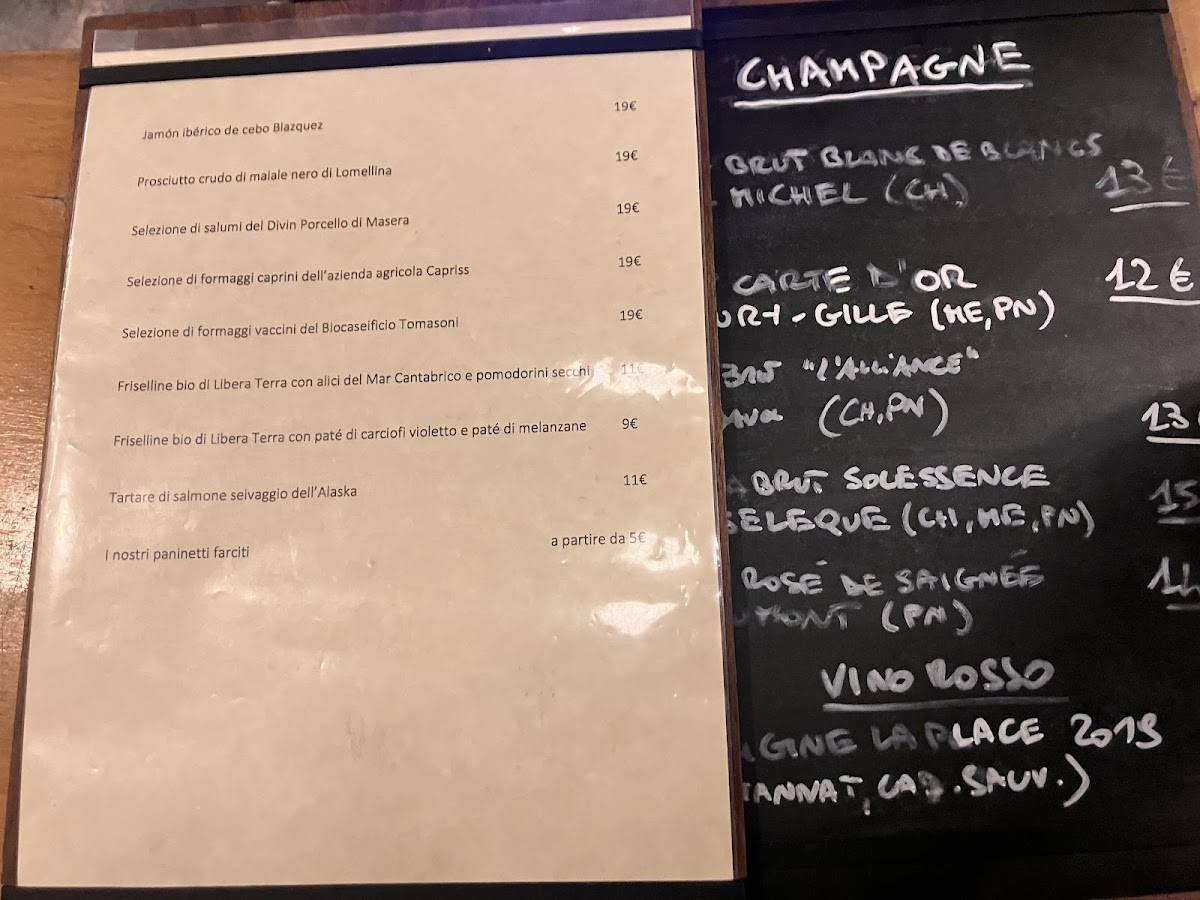 Jamón ibérico de cebo Blazquez 19€
Prosciutto crudo di maiale nero di Lomellina 19€
Selezione di salumi del Divin Porcello di Masera 19€
Selezione di formaggi caprini dell'azienda agricola Capriss 19€
Selezione di formaggi vaccini del Biocaseificio Tomasoni 19€
Friselline bio di Libera Terra con alici del Mar Cantabrico e pomodorini secchi 11€
Friselline bio di Libera Terra con paté di carciofi violetto e paté di melanzane 9€
Tartare di salmone selvaggio dell'Alaska 11€
I nostri paninetti farciti a partire da 5€
CHAMPAGNE
BRUT BLANC DE BLANCS
MICHEL (CH) 13€
CARTE D'OR 12€
GILLE (ME, PN)
"L'ALLIANCE"
(CH, PN) 13
BRUT SOLESSENCE 15
(CH, ME, PN)
ROSÉ DE SAIGNÉE
(PN)
VINO ROSSO
LAPLACE 2019
TANNAT, CAB. SAUV.)